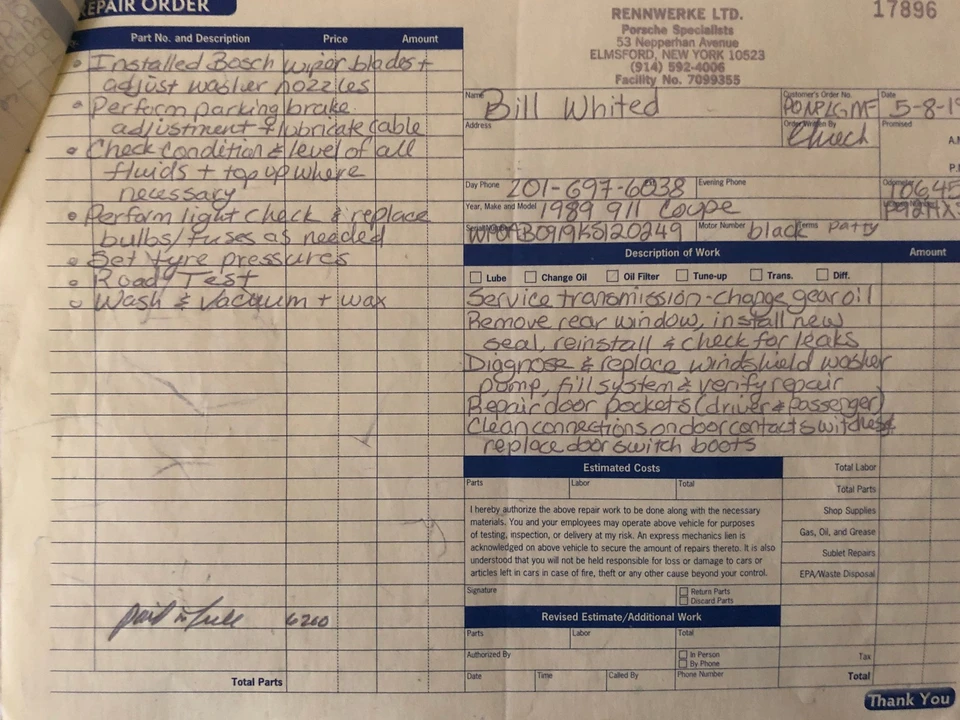 REPAIR ORDER
Part No. and Description Price Amount
• Installed Bosch wiper blades +
adjust washer nozzles
• Perform parking brake
adjustment + lubricate cable
• Check condition & level of all
fluids + top up where
necessary
• Perform light check & replace
bulbs/fuses as needed
• Set tyre pressures
• Road Test
• Wash & vacuum + wax
paid in full 6200
Total Parts
RENNWERKE LTD.
Porsche Specialists
53 Nepperhan Avenue
ELMSFORD, NEW YORK 10523
(914) 592-4006
Facility No. 7099355
17896
Name Bill Whited Customer's Order No. Date 5-8-19
Address Order Written By Chuck Promised
A.M
P.
Day Phone 201-697-6038 Evening Phone Odometer 10645
Year, Make and Model 1989 911 Coupe
Serial Number WP0AB0919KS120249 Motor Number black Terms
Description of Work Amount
Lube Change Oil Oil Filter Tune-up Trans. Diff.
Service transmission - change gear oil
Remove rear window, install new
seal, reinstall & check for leaks
Diagnose & replace windshield washer
pump, fill system & verify repair
Repair door pockets (driver & passenger)
Clean connections on door contact switches &
replace door switch boots
Estimated Costs Total Labor
Parts Labor Total
Total Parts
I hereby authorize the above repair work to be done along with the necessary
materials. You and your employees may operate above vehicle for purposes
of testing, inspection, or delivery at my risk. An express mechanics lien is
acknowledged on above vehicle to secure the amount of repairs thereto. It is also
understood that you will not be held responsible for loss or damage to cars or
articles left in cars in case of fire, theft or any other cause beyond your control.
Shop Supplies
Gas, Oil, and Grease
Sublet Repairs
EPA/Waste Disposal
Signature Return Parts
Discard Parts
Revised Estimate/Additional Work
Parts Labor Total
Authorized By In Person
By Phone
Tax
Date Time Called By Phone Number Total
Thank You